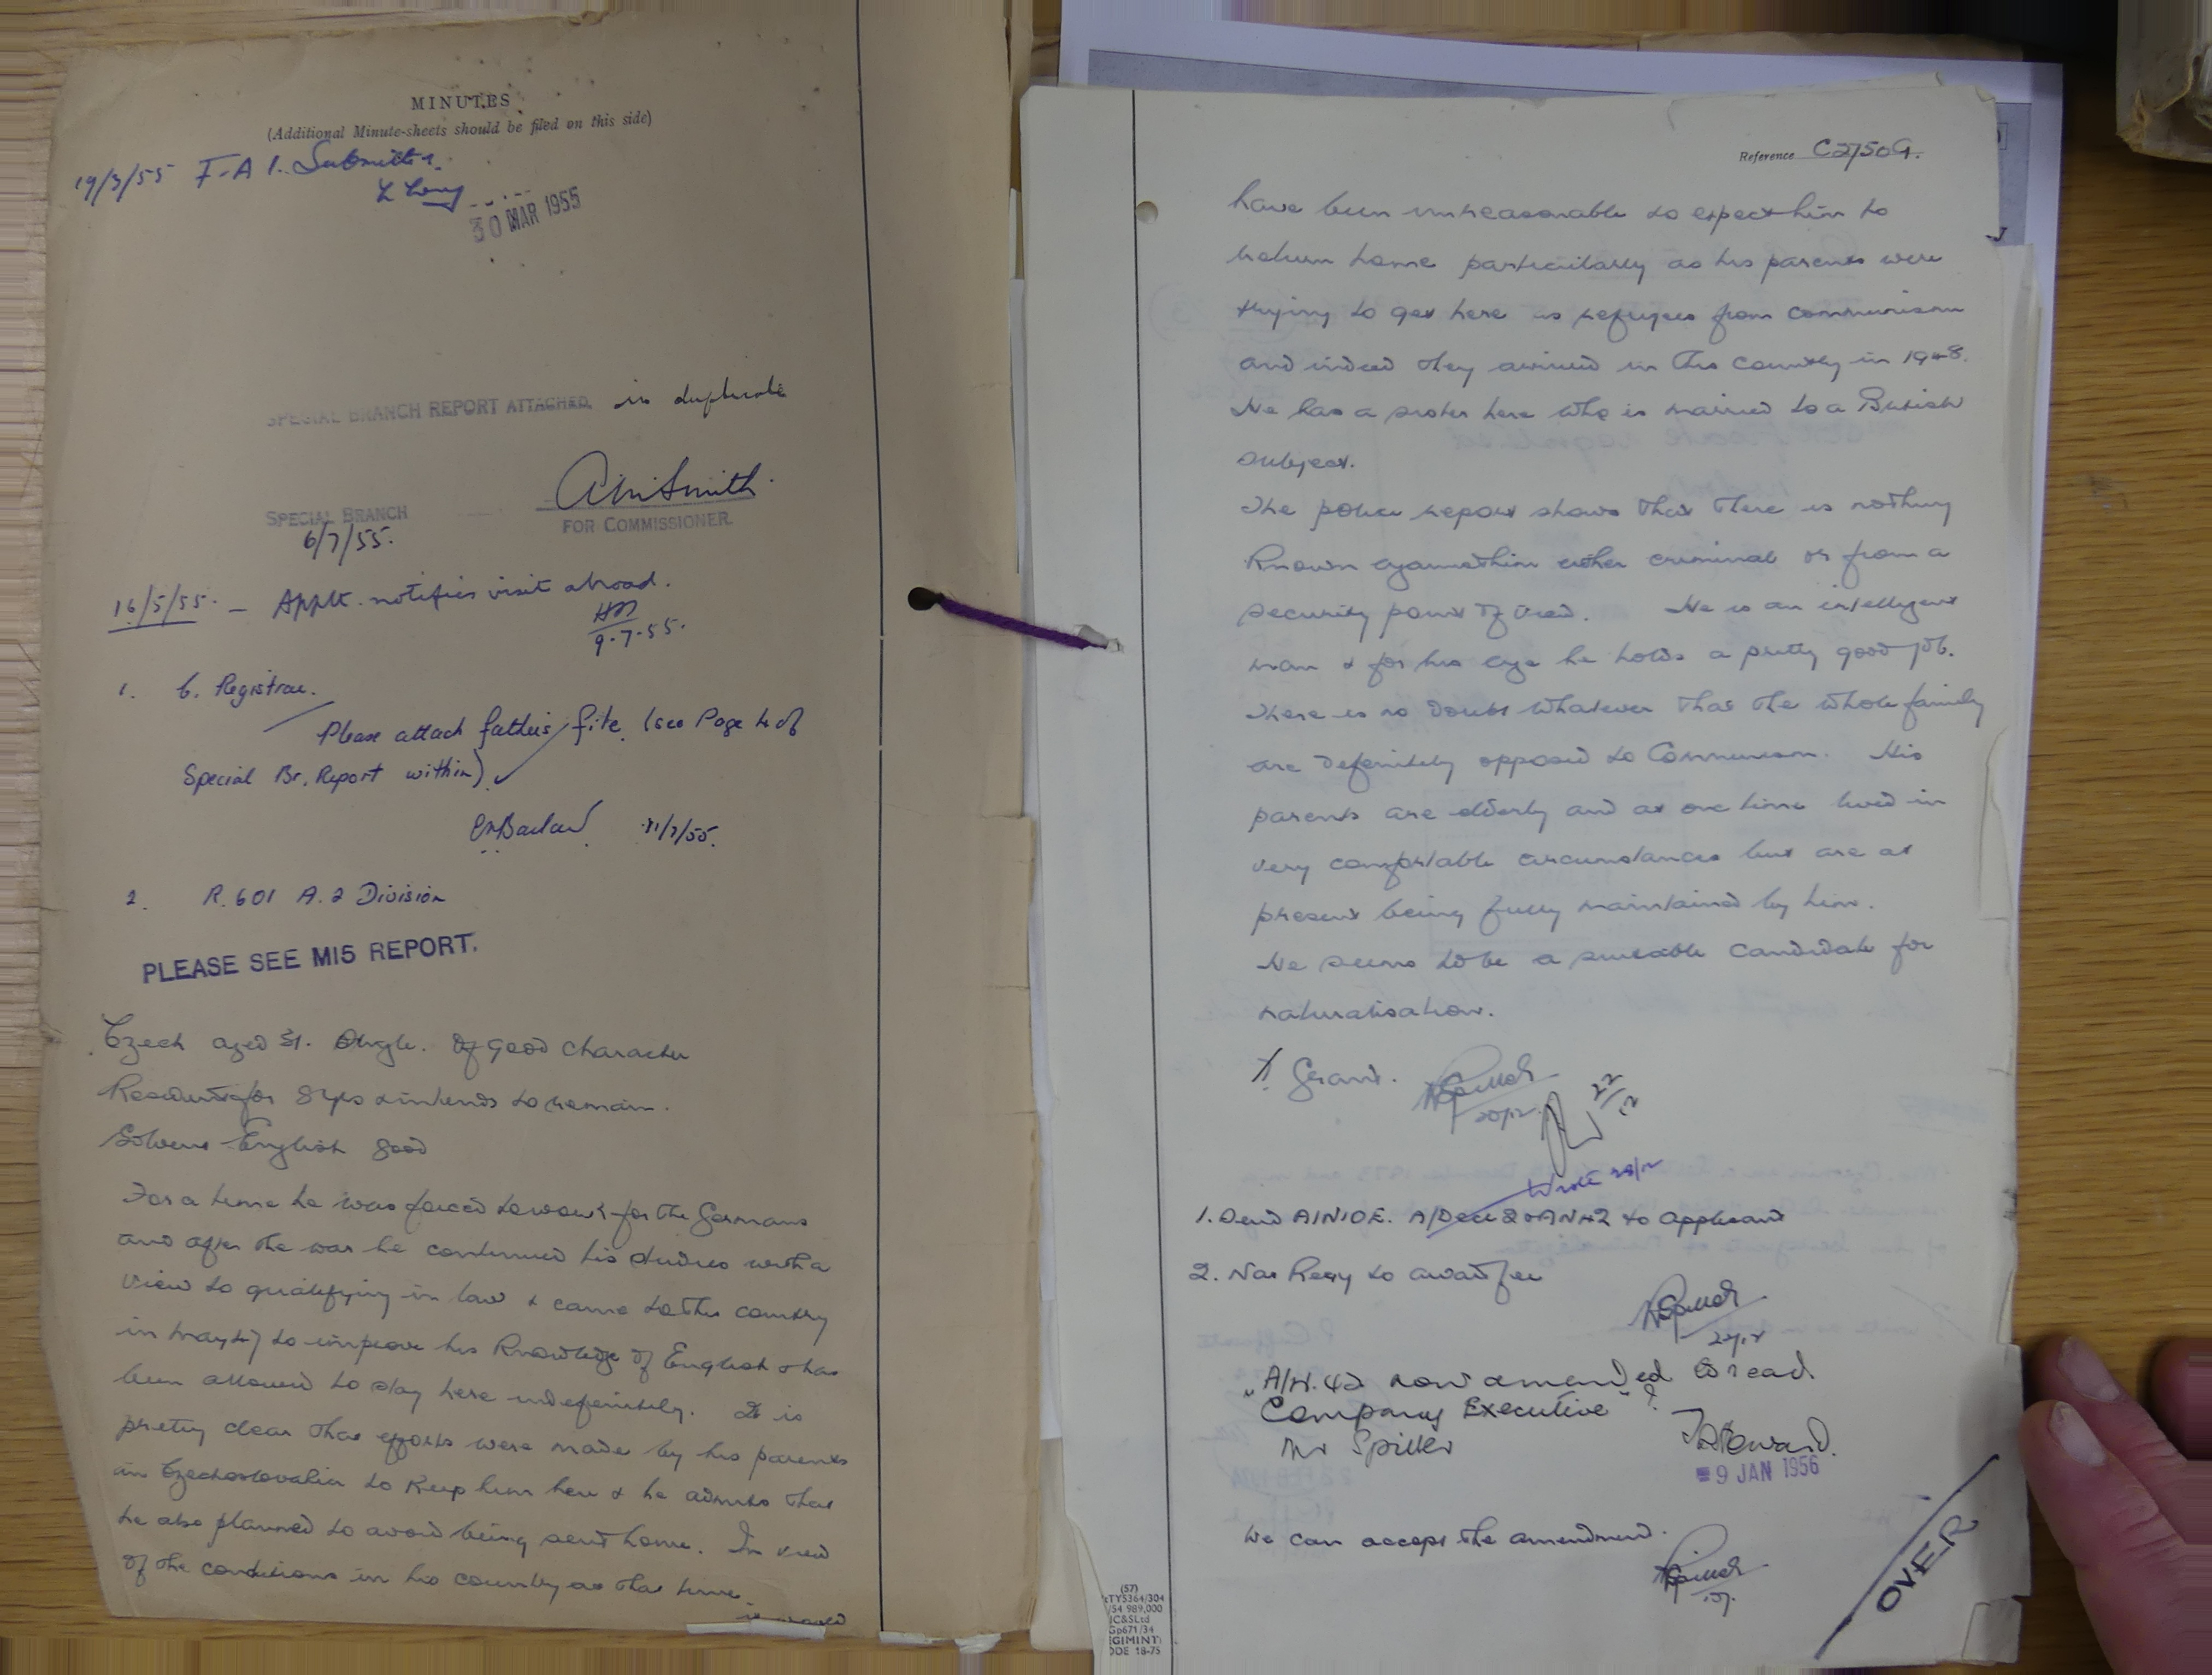 MINUTES
(Additional Minute-sheets should be filed on this side)
19/3/55 F.A 1. Submitted.
30 MAR 1955
SPECIAL BRANCH REPORT ATTACHED. in duplicate
Smith.
SPECIAL BRANCH
FOR COMMISSIONER.
6/7/55.
16/5/55. – Applt. notifies visit abroad.
9.7.55.
1. C. Registrar.
Please attach father's file (see Page 4 of
Special Br. Report within)
11/7/55.
2. R.601 A.2 Division
PLEASE SEE MI5 REPORT.
Czech aged 31. Single. Of good character
Resident for 8 yrs & intends to remain.
Solvent English good
For a time he was forced to work for the Germans
and after the war he continued his studies with a
view to qualifying in law & came to this country
in May 47 to improve his knowledge of English & has
been allowed to stay here indefinitely. It is
pretty clear that efforts were made by his parents
in Czechoslovakia to keep him here & he admits that
he also planned to avoid being sent home. In view
of the conditions in his country at that time
it would
Reference C2750G.
have been unreasonable to expect him to
return home particularly as his parents were
trying to get here as refugees from communism
and indeed they arrived in this country in 1948.
He has a sister here who is married to a British
subject.
The police report shows that there is nothing
known against him either criminal or from a
security point of view. He is an intelligent
man & for his age he holds a pretty good job.
There is no doubt whatever that the whole family
are definitely opposed to Communism. His
parents are elderly and at one time lived in
very comfortable circumstances but are at
present being fully maintained by him.
He seems to be a suitable candidate for
naturalisation.
? Grant.
20/12
22/12
Wrote 28/12
1. Send A/N10E. A/Decl 2 & A/N42 to applicant
2. Nat Regy to await fee
"A/N.42 now amended to read
Company Executive"?
Mr Spiller
9 JAN 1956
We can accept the amendment.
OVER
(57)
54 989,000
JC&SLtd
Gp671/34
(REGIMINT)
CODE 18-75